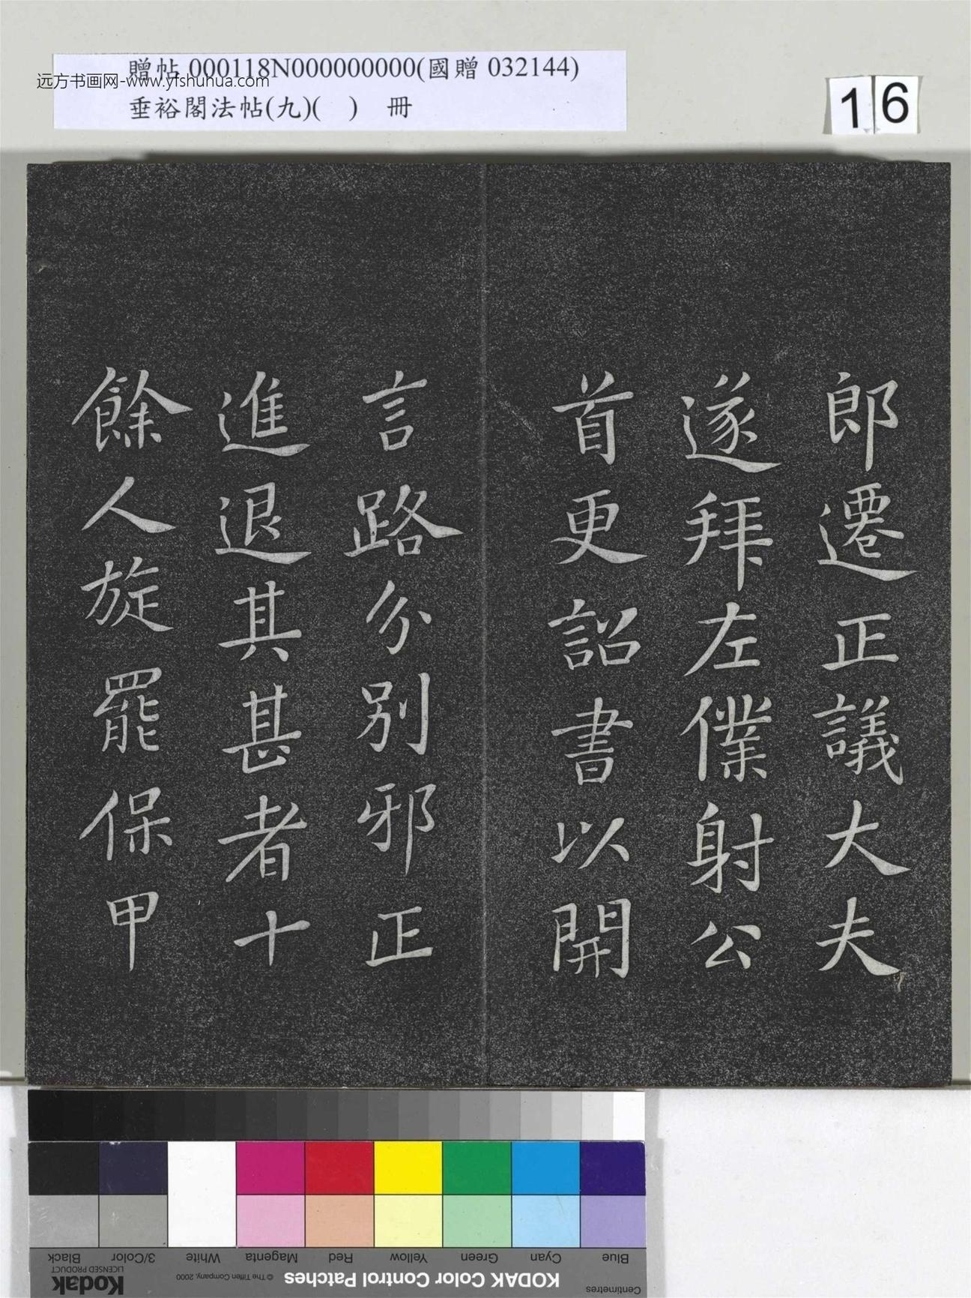 贈帖 000118N000000000(國贈 032144)
远方书画网-www.yishuhua.com
垂裕閣法帖(九)(　)　冊
16
郎遷正議大夫
遂拜左僕射公
首更詔書以開
言路分別邪正
進退其甚者十
餘人旋罷保甲
Black
3/Color
White
Magenta
Red
Yellow
Green
Cyan
Blue
Kodak
LICENSED PRODUCT
© The Tiffen Company, 2000
KODAK Color Control Patches
Centimetres